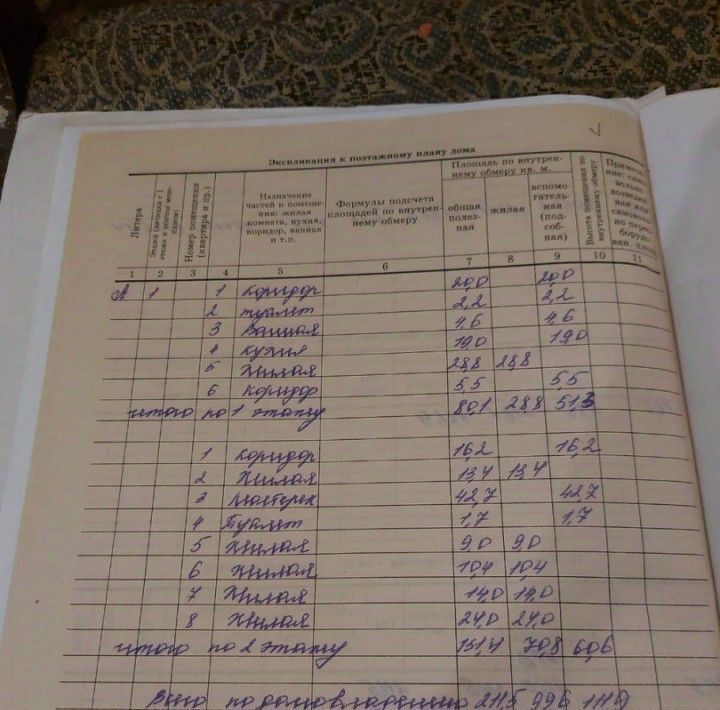 Экспликация к поэтажному плану дома
Литера
Номер помещения (квартира и пр.)
Назначение частей и помещения: жилая комната, кухня, коридор, ванная и т.п.
Формулы подсчета площадей по внутреннему обмеру
Площадь по внутреннему обмеру кв. м.
общая полезная
жилая
вспомогательная (подсобная)
Высота помещения по внутреннему обмеру
1 2 3 4 5 6 7 8 9 10 11
А 1 1 коридор 20,0 20,0
2 туалет 2,2 2,2
3 Ванная 4,6 4,6
4 кухня 19,0 19,0
5 Жилая 28,8 28,8
6 Коридор 5,5 5,5
итого по 1 этажу 80,1 28,8 51,3
1 коридор 16,2 16,2
2 Жилая 13,4 13,4
3 42,7 42,7
4 Туалет 1,7 1,7
5 Жилая 9,0 9,0
6 Жилая 10,4 10,4
7 Жилая 14,0 14,0
8 Жилая 24,0 24,0
итого по 2 этажу 131,4 70,8 60,6
Всего по домовладению 211,5 99,6 111,9